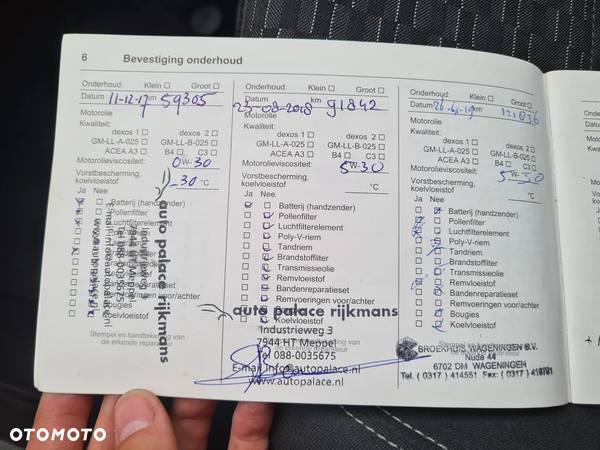 6 Bevestiging onderhoud
Onderhoud: Klein Groot
Datum 11-12-17 km 59305
Motorolie
Kwaliteit:
dexos 1 dexos 2
GM-LL-A-025 GM-LL-B-025
ACEA A3 B4 C3
Motorolieviscositeit:
0W-30
Vorstbescherming,
koelvloeistof
-30 °C
Ja Nee
Batterij (handzender)
Pollenfilter
Luchtfilterelement
Bougies
Koelvloeistof
Stempel en handtekening van
de erkende reparateur
auto palace rijkmans
Industrieweg
7944 HT Meppel
Tel 088-0035675
Onderhoud: Klein Groot
Datum 23-08-2018 km 91842
Motorolie
Kwaliteit:
dexos 1 dexos 2
GM-LL-A-025 GM-LL-B-025
ACEA A3 B4 C3
Motorolieviscositeit:
5W-30
Vorstbescherming,
koelvloeistof
°C
Ja Nee
Batterij (handzender)
Pollenfilter
Luchtfilterelement
Poly-V-riem
Tandriem
Brandstoffilter
Transmissieolie
Remvloeistof
Bandenreparatieset
Remvoeringen voor/achter
Koelvloeistof
auto palace rijkmans
Industrieweg 3
7944 HT Meppel
Tel 088-0035675
E-mail info@autopalace.nl
www.autopalace.nl
Onderhoud: Klein Groot
Datum km
Motorolie
Kwaliteit:
dexos 1 dexos 2
GM-LL-A-025 GM-LL-B-025
ACEA A3 B4 C3
Motorolieviscositeit:
5W-30
Vorstbescherming,
koelvloeistof
°C
Ja Nee
Batterij (handzender)
Pollenfilter
Luchtfilterelement
Poly-V-riem
Tandriem
Brandstoffilter
Transmissieolie
Remvloeistof
Bandenreparatieset
Remvoeringen voor/achter
Bougies
Koelvloeistof
Stempel en handtekening van
BROEKHUIS WAGENINGEN B.V.
Nude 44
6702 DM WAGENINGEN
Tel. (0317) 414551 Fax: (0317)
OTOMOTO